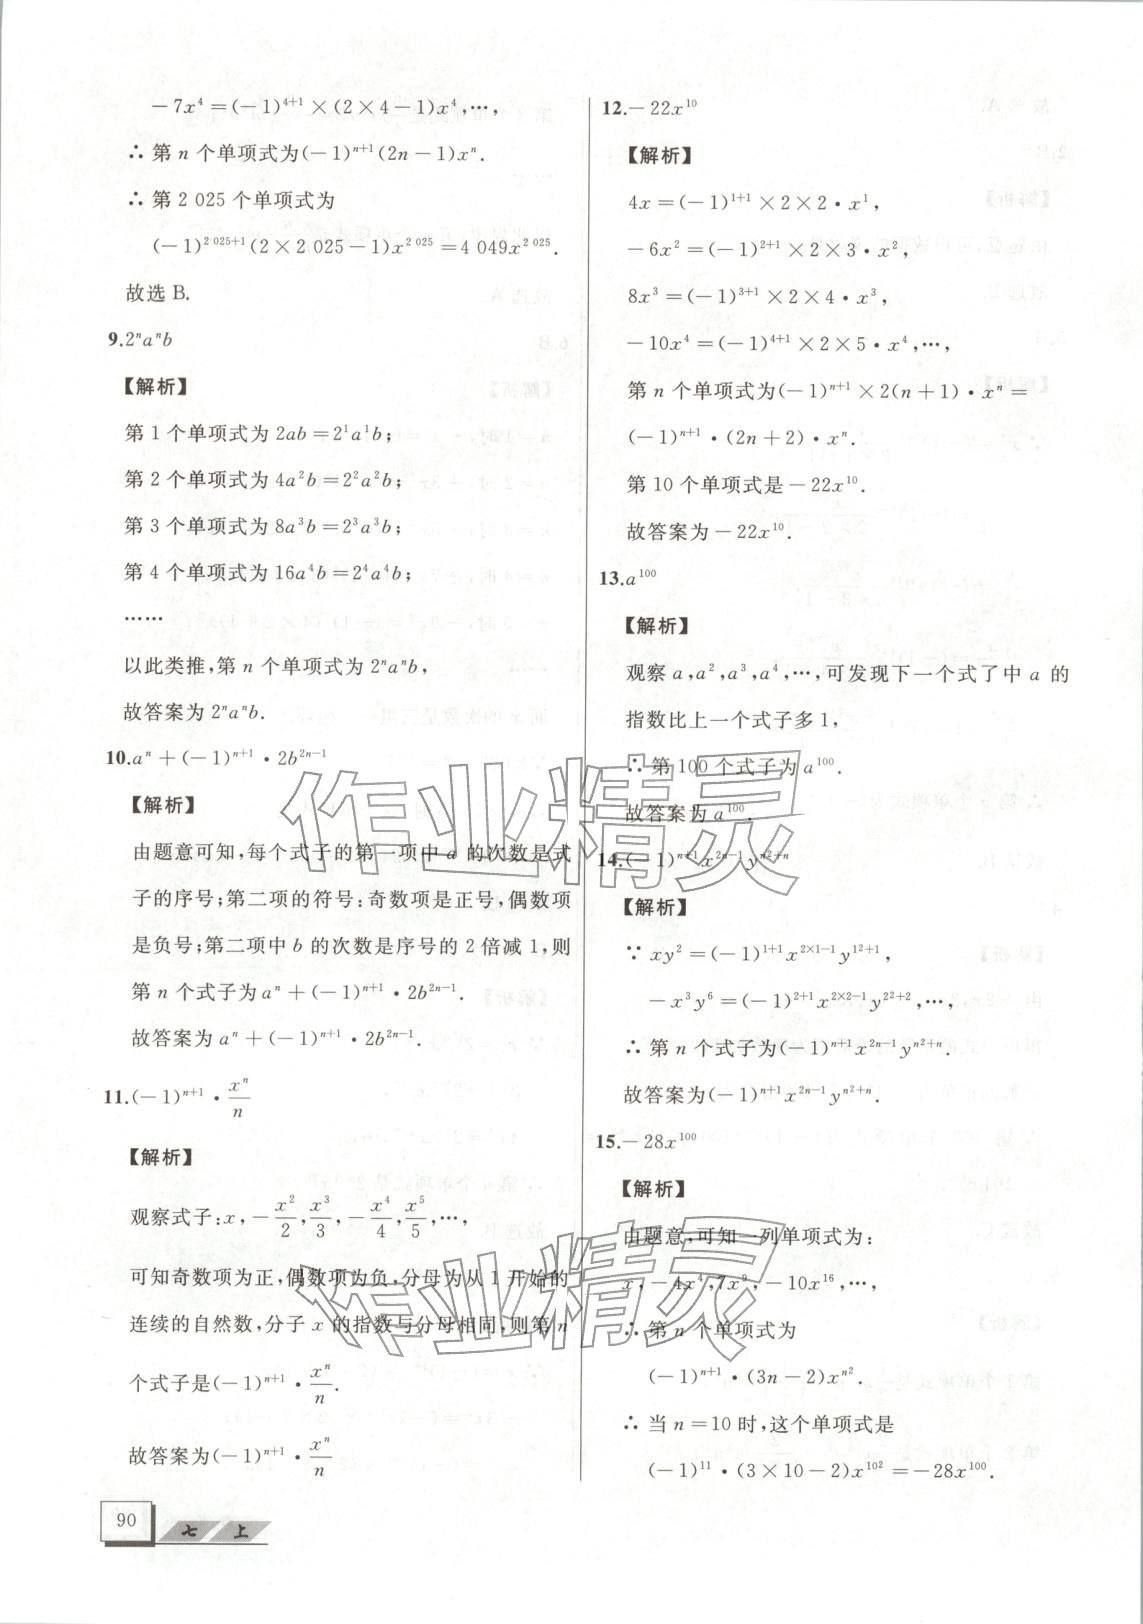 －7x⁴＝(－1)⁴⁺¹×(2×4－1)x⁴,…,
∴ 第 n 个单项式为(－1)ⁿ⁺¹(2n－1)xⁿ.
∴ 第 2 025 个单项式为
(－1)²⁰²⁵⁺¹(2×2 025－1)x²⁰²⁵＝4 049x²⁰²⁵.
故选 B.
9.2ⁿaⁿb
【解析】
第 1 个单项式为 2ab＝2¹a¹b;
第 2 个单项式为 4a²b＝2²a²b;
第 3 个单项式为 8a³b＝2³a³b;
第 4 个单项式为 16a⁴b＝2⁴a⁴b;
……
以此类推,第 n 个单项式为 2ⁿaⁿb,
故答案为 2ⁿaⁿb.
10.aⁿ＋(－1)ⁿ⁺¹・2b²ⁿ⁻¹
【解析】
由题意可知,每个式子的第一项中 a 的次数是式
子的序号;第二项的符号:奇数项是正号,偶数项
是负号;第二项中 b 的次数是序号的 2 倍减 1,则
第 n 个式子为 aⁿ＋(－1)ⁿ⁺¹・2b²ⁿ⁻¹.
故答案为 aⁿ＋(－1)ⁿ⁺¹・2b²ⁿ⁻¹.
11.(－1)ⁿ⁺¹・xⁿ/n
【解析】
观察式子:x,－x²/2,x³/3,－x⁴/4,x⁵/5,…,
可知奇数项为正,偶数项为负,分母为从 1 开始的
连续的自然数,分子 x 的指数与分母相同,则第 n
个式子是(－1)ⁿ⁺¹・xⁿ/n.
故答案为(－1)ⁿ⁺¹・xⁿ/n
90
七 上
12.－22x¹⁰
【解析】
4x＝(－1)¹⁺¹×2×2・x¹,
－6x²＝(－1)²⁺¹×2×3・x²,
8x³＝(－1)³⁺¹×2×4・x³,
－10x⁴＝(－1)⁴⁺¹×2×5・x⁴,…,
第 n 个单项式为(－1)ⁿ⁺¹×2(n＋1)・xⁿ＝
(－1)ⁿ⁺¹・(2n＋2)・xⁿ.
第 10 个单项式是－22x¹⁰.
故答案为－22x¹⁰.
13.a¹⁰⁰
【解析】
观察 a,a²,a³,a⁴,…,可发现下一个式了中 a 的
指数比上一个式子多 1,
∴ 第 100 个式子为 a¹⁰⁰.
故答案为 a¹⁰⁰.
14.(－1)ⁿ⁺¹x²ⁿ⁻¹y^(n²＋n)
【解析】
∵ xy²＝(－1)¹⁺¹x^(2×1－1)y^(1²＋1),
－x³y⁶＝(－1)²⁺¹x^(2×2－1)y^(2²＋2),…,
∴ 第 n 个式子为(－1)ⁿ⁺¹x²ⁿ⁻¹y^(n²＋n).
故答案为(－1)ⁿ⁺¹x²ⁿ⁻¹y^(n²＋n).
15.－28x¹⁰⁰
【解析】
由题意,可知一列单项式为:
x,－4x⁴,7x⁹,－10x¹⁶,…,
∴ 第 n 个单项式为
(－1)ⁿ⁺¹・(3n－2)x^(n²).
∴ 当 n＝10 时,这个单项式是
(－1)¹¹・(3×10－2)x^(10²)＝－28x¹⁰⁰.
作业精灵
作业精灵